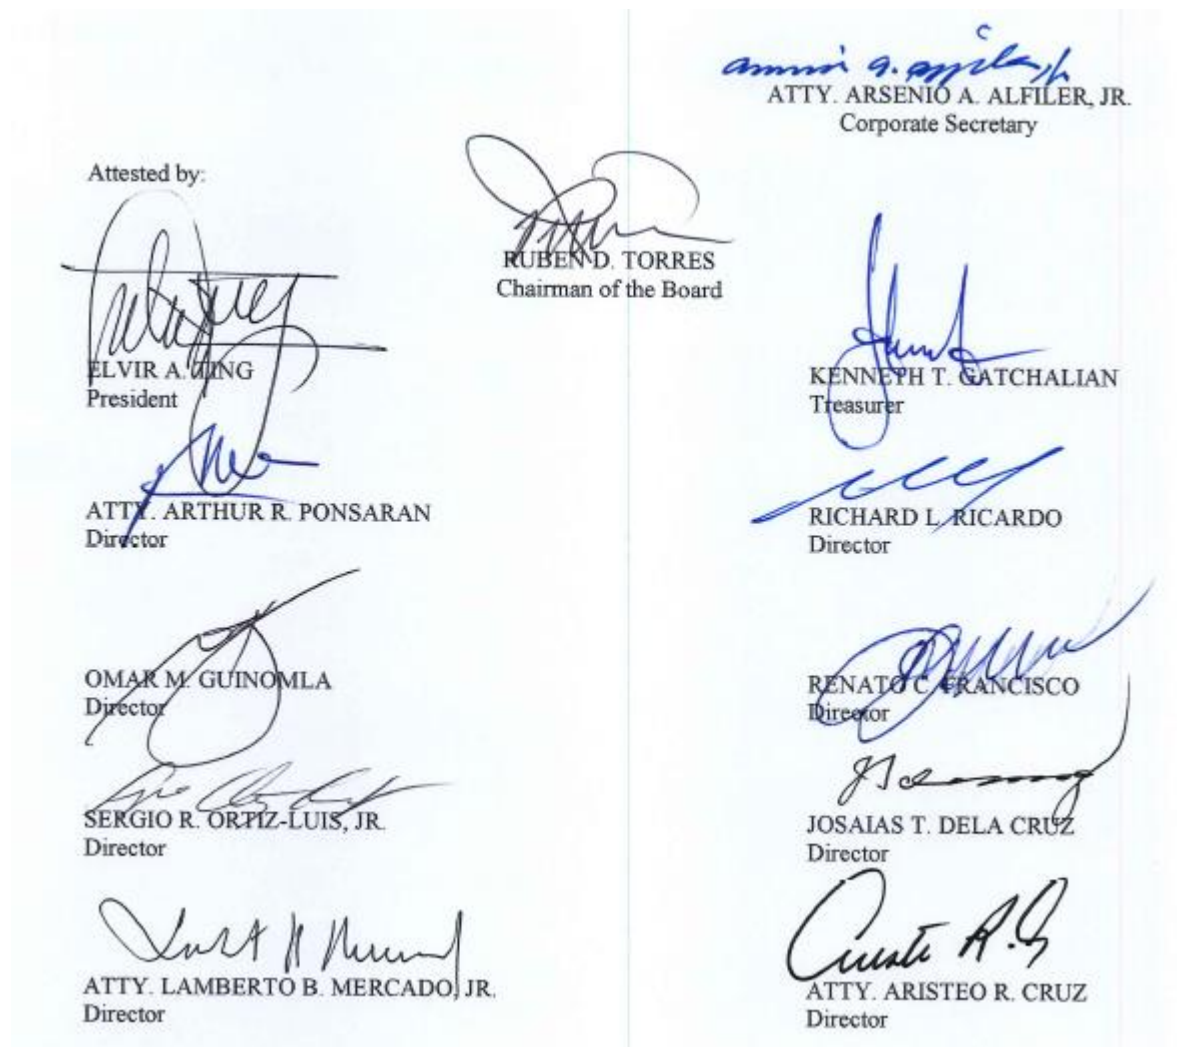 ATTY. ARSENIO A. ALFILER, JR.
Corporate Secretary
Attested by:
RUBEN D. TORRES
Chairman of the Board
ELVIR A. TING
President
KENNETH T. GATCHALIAN
Treasurer
ATTY. ARTHUR R. PONSARAN
Director
RICHARD L. RICARDO
Director
OMAR M. GUINOMLA
Director
RENATO C. FRANCISCO
Director
SERGIO R. ORTIZ-LUIS, JR.
Director
JOSAIAS T. DELA CRUZ
Director
ATTY. LAMBERTO B. MERCADO, JR.
Director
ATTY. ARISTEO R. CRUZ
Director